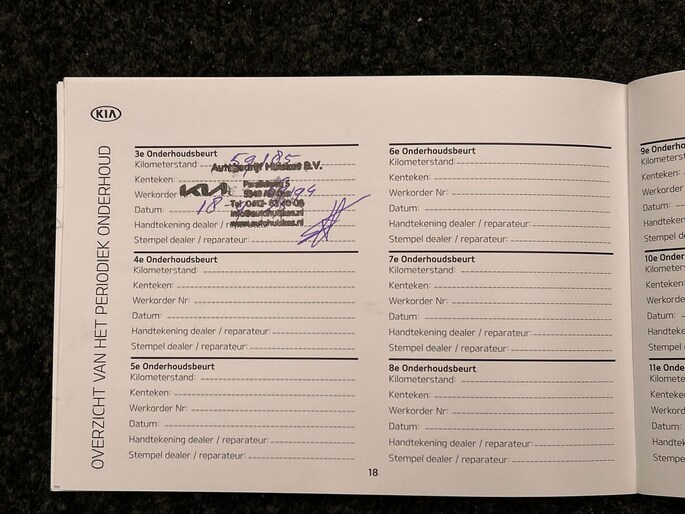 KIA
OVERZICHT VAN HET PERIODIEK ONDERHOUD
3e Onderhoudsbeurt
Kilometerstand: 59,185
Autobedrijf Huiskes B.V.
Kenteken:
Werkorder
KIA
Datum: 18
Tel.
Handtekening dealer /
info@autohuiskes.nl
www.autohuiskes.nl
Stempel dealer / reparateur:
4e Onderhoudsbeurt
Kilometerstand:
Kenteken:
Werkorder Nr:
Datum:
Handtekening dealer / reparateur:
Stempel dealer / reparateur:
5e Onderhoudsbeurt
Kilometerstand:
Kenteken:
Werkorder Nr:
Datum:
Handtekening dealer / reparateur:
Stempel dealer / reparateur:
6e Onderhoudsbeurt
Kilometerstand:
Kenteken:
Werkorder Nr:
Datum:
Handtekening dealer / reparateur:
Stempel dealer / reparateur:
7e Onderhoudsbeurt
Kilometerstand:
Kenteken:
Werkorder Nr:
Datum:
Handtekening dealer / reparateur:
Stempel dealer / reparateur:
8e Onderhoudsbeurt
Kilometerstand:
Kenteken:
Werkorder Nr:
Datum:
Handtekening dealer / reparateur:
Stempel dealer / reparateur:
18
9e On
Kilomet
Kenteke
Werkord
Datum:
Handteke
Stempel
10e Onder
Kilometers
Kenteken:
Werkorde
Datum:
Handteke
Stempel d
11e Onde
Kilomete
Kenteke
Werkord
Datum:
Handtek
Stempel